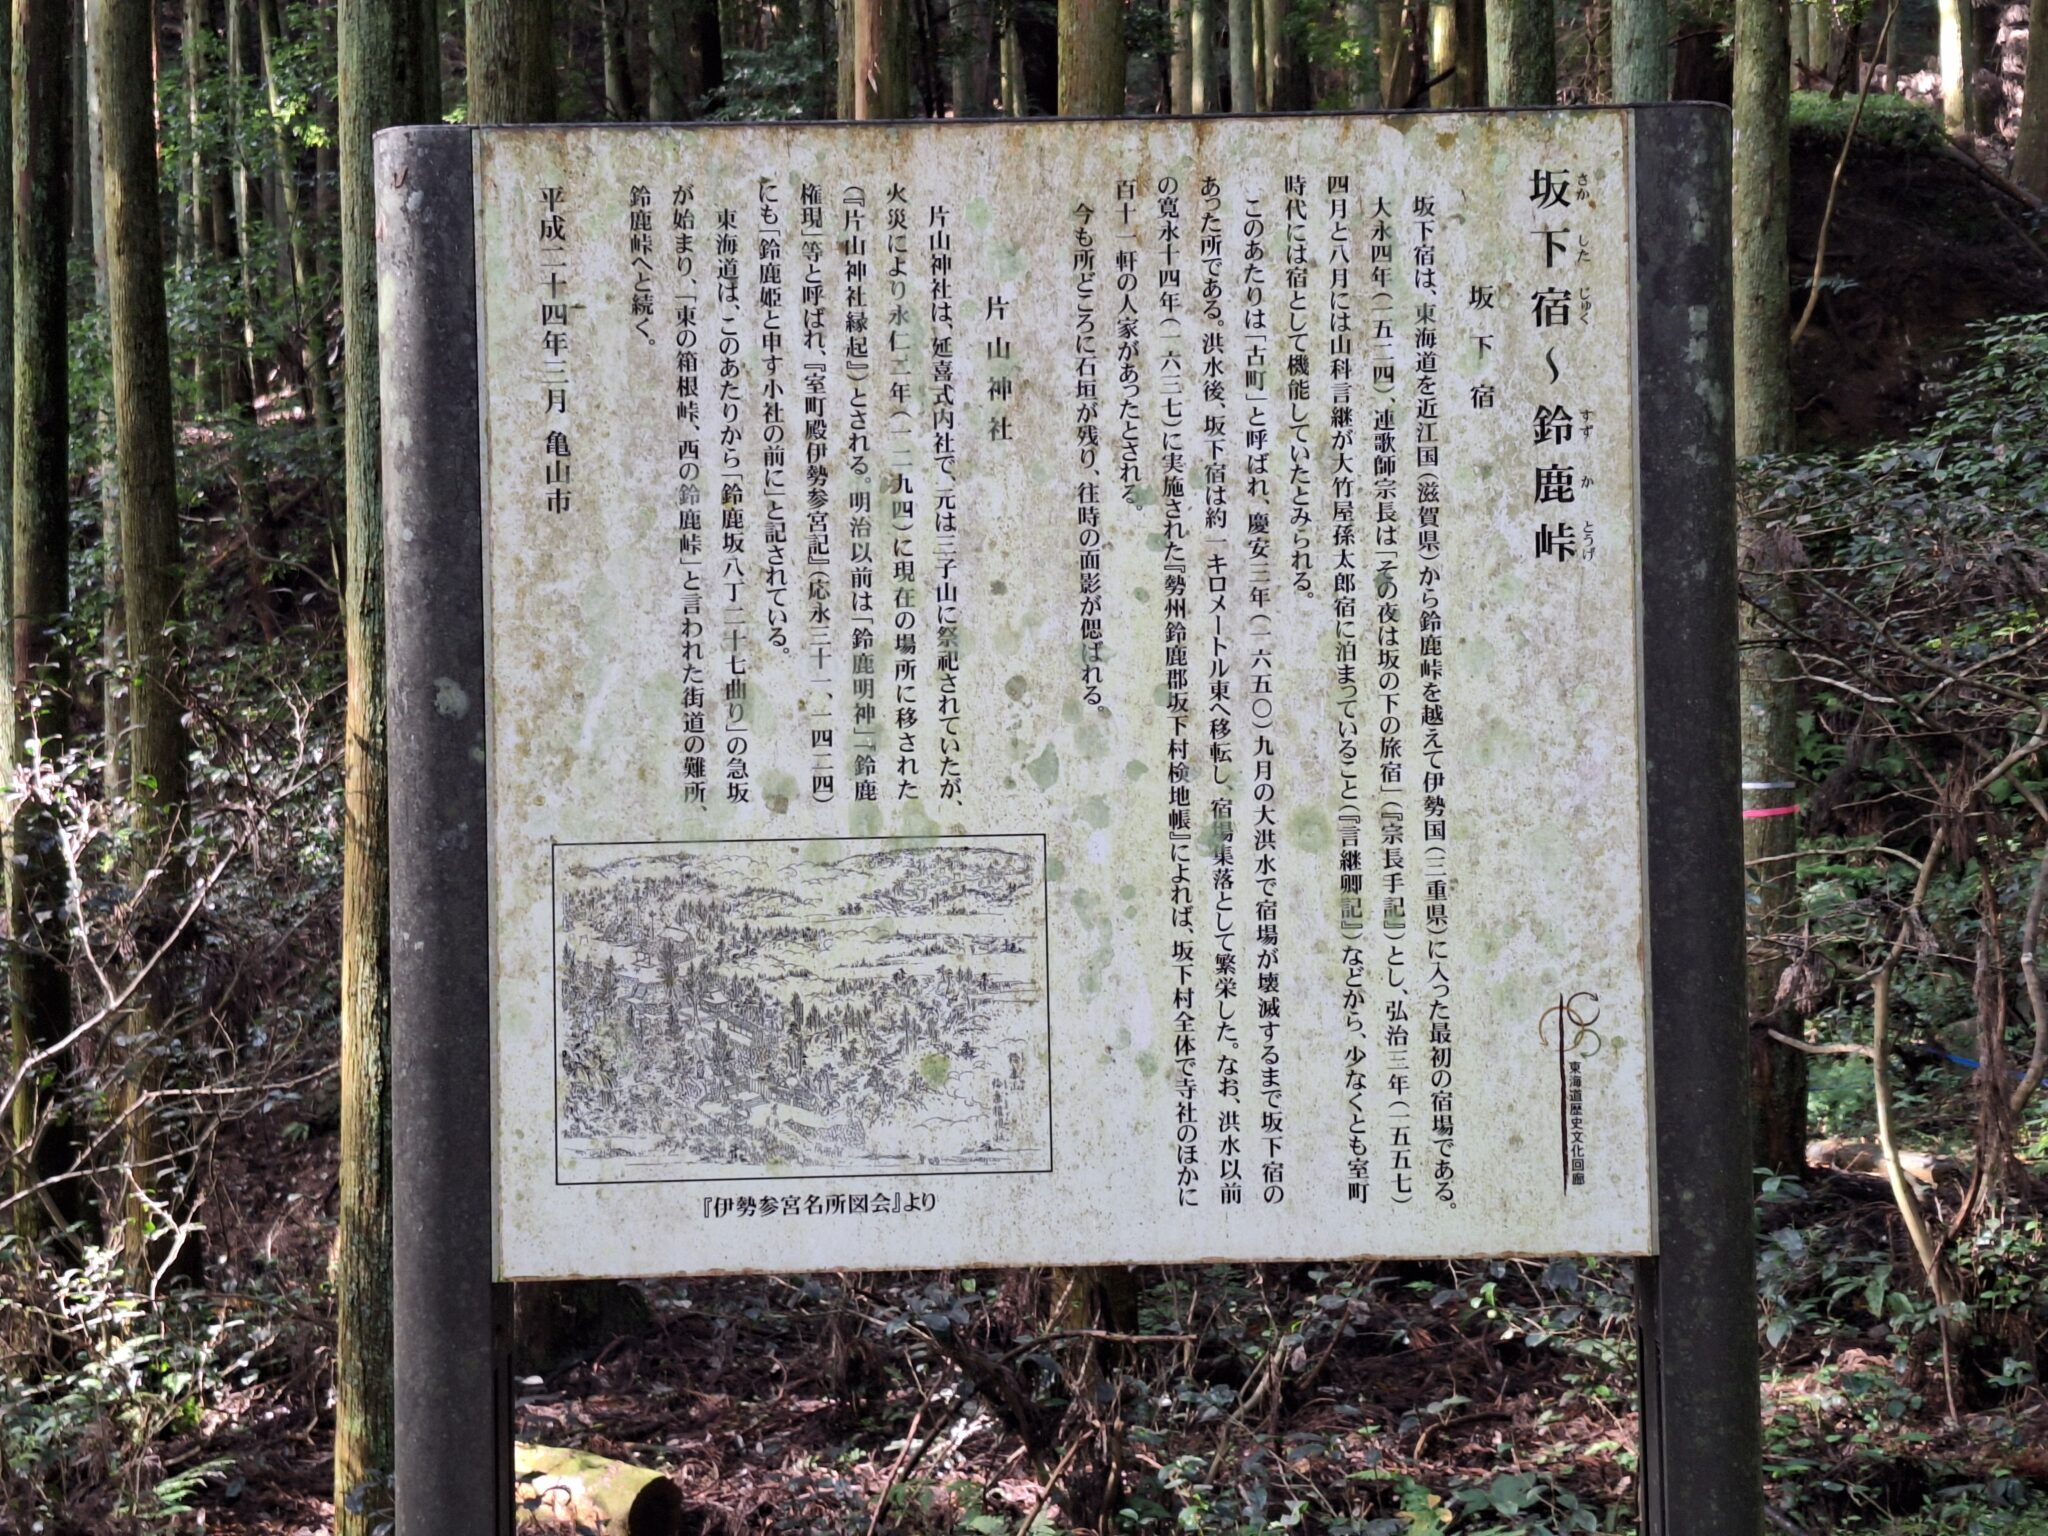 坂下宿～鈴鹿峠
さか した じゅく すず か とうげ
坂下宿
坂下宿は、東海道を近江国（滋賀県）から鈴鹿峠を越えて伊勢国（三重県）に入った最初の宿場である。
大永四年（一五二四）、連歌師宗長は「その夜は坂の下の旅宿」（『宗長手記』）とし、弘治三年（一五五七）
四月と八月には山科言継が大竹屋孫太郎宿に泊まっていること（『言継卿記』）などから、少なくとも室町
時代には宿として機能していたとみられる。
このあたりは「古町」と呼ばれ、慶安三年（一六五〇）九月の大洪水で宿場が壊滅するまで坂下宿の
あった所である。洪水後、坂下宿は約一キロメートル東へ移転し、宿場集落として繁栄した。なお、洪水以前
の寛永十四年（一六三七）に実施された『勢州鈴鹿郡坂下村検地帳』によれば、坂下村全体で寺社のほかに
百十一軒の人家があったとされる。
今も所どころに石垣が残り、往時の面影が偲ばれる。
片山神社
片山神社は、延喜式内社で、元は三子山に祭祀されていたが、
火災により永仁二年（一二九四）に現在の場所に移された
（『片山神社縁起』）とされる。明治以前は「鈴鹿明神」「鈴鹿
権現」等と呼ばれ、『室町殿伊勢参宮記』（応永三十一、一四二四）
にも「鈴鹿姫と申す小社の前に」と記されている。
東海道は、このあたりから「鈴鹿坂八丁二十七曲り」の急坂
が始まり、「東の箱根峠、西の鈴鹿峠」と言われた街道の難所、
鈴鹿峠へと続く。
平成二十四年三月 亀山市
『伊勢参宮名所図会』より
東海道歴史文化回廊